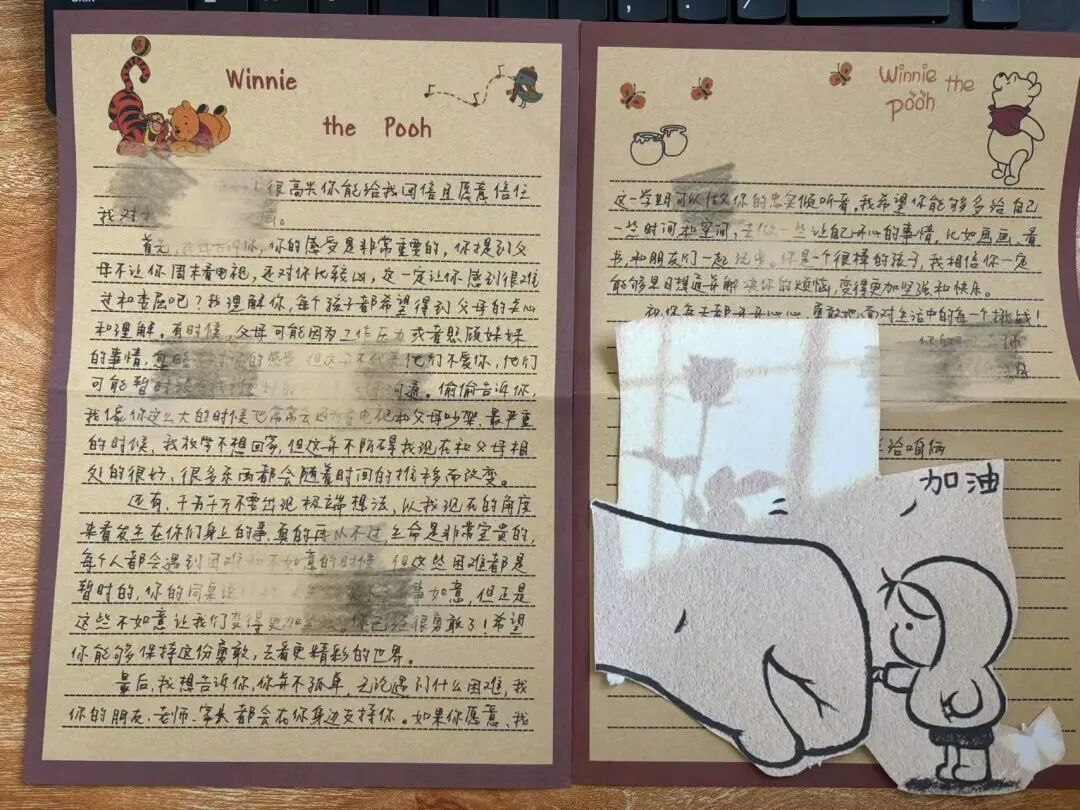 Winnie
the Pooh
很高兴你能给我回信且愿意信任
我对
首先,我想告诉你,你的感受是非常重要的,你提到父
母不让你周末看电视,还对你比较凶,这一定让你感到很难
过和委屈吧?我理解你,每个孩子都希望得到父母的关心
和理解。有时候,父母可能因为工作压力或者照顾妹妹
的事情,忽略 的感受 但这并不代表他们不爱你,他们
可能暂时 沟通。偷偷告诉你,
我像你这么大的时候也常常会因为看电视和父母吵架,最严重
的时候,我放学不想回家,但这并不妨碍我现在和父母相
处的很好,很多东西都会随着时间的推移而改变。
还有,千万千万不要出现极端想法,以我现在的角度
来看发生在你们身上的事,真的再小不过,生命是非常宝贵的,
每个人都会遇到困难和不如意的时候,但这些困难都是
暂时的,你的同桌说 事如意,但正是
这些不如意让我们变得更加 你已经很勇敢了!希望
你能够保持这份勇敢,去看更精彩的世界。
最后,我想告诉你,你并不孤单,无论遇到什么困难,我
你的朋友、老师、家长都会在你身边支持你。如果你愿意,我
Winnie the
Pooh
这一学期可以做你的忠实倾听者。我希望你能够多给自己
一些时间和空间,去做一些让自己开心的事情,比如画画、看
书、和朋友们一起玩耍。你是一个很棒的孩子,我相信你一定
能够早日想通并解决你的烦恼,变得更加坚强和快乐。
祝你每天都开开心心,勇敢地面对生活中的每一个挑战!
你的
给咱俩
加油